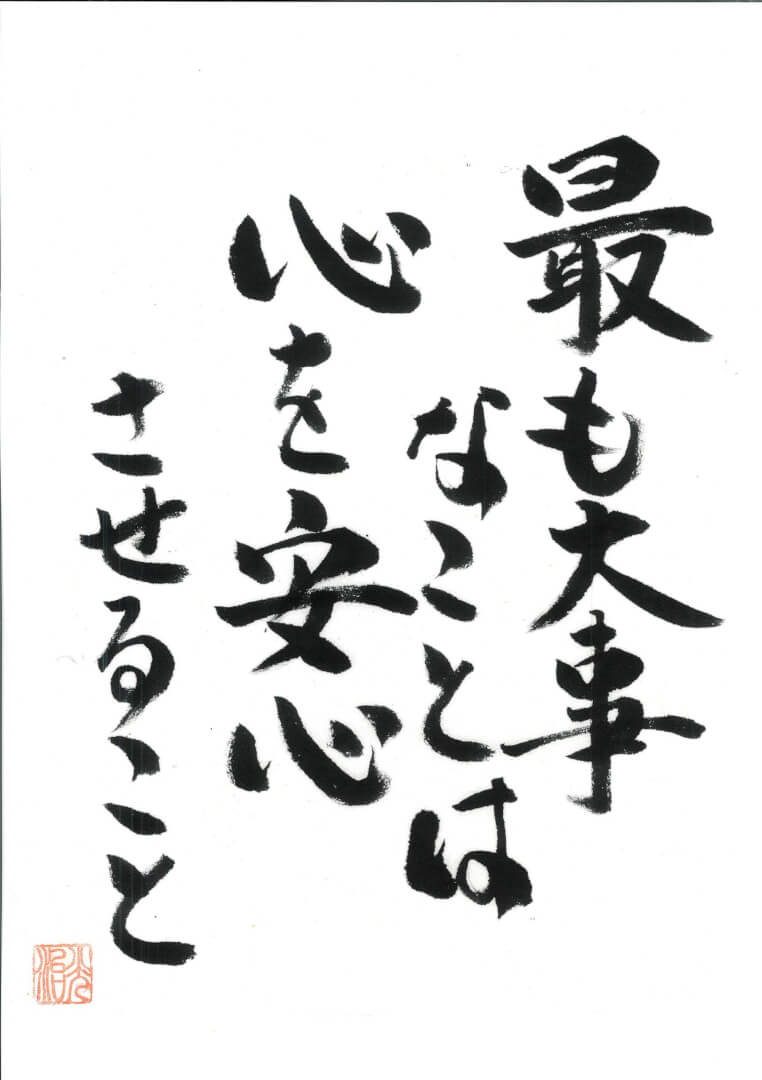 最も大事
なことは
心を安心
させること